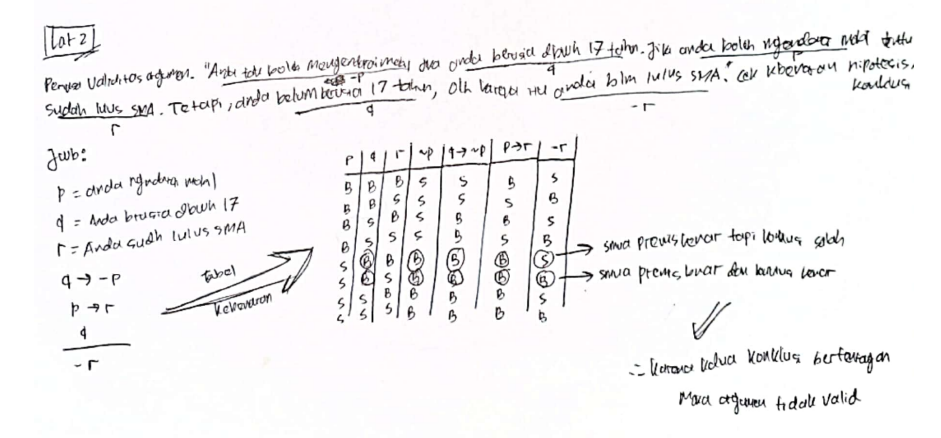 Lat 2
Periksa validitas argumen. "Anda tdk boleh mengendarai mobil jika anda berusia dbwh 17 tahn. Jika anda boleh mgendarai mobil tentu
~p
q
p
sudah lulus SMA. Tetapi, anda belum berusia 17 tahun, olh karna itu anda blm lulus SMA." Cek kbenaran hipotesis,
konklusi
r
q
-r
Jwb:
p = anda ngndarai mobil
q = Anda brusia dbwh 17
r = Anda sudh lulus SMA
q → -p
p → r
q
-r
Tabel
Kebenaran
p q r ~p q→~p p→r -r
B B B S S B S
B B S S S S B
B S B S B B S
B S S S B S B
S B B B B B S
S B S B B B B
S S B B B B S
S S S B B B B
→ smua premis benar tapi konklusi salah
→ smua premis benar dan konklusi benar
∴ karena kedua konklusi bertentangan
Maka argumen tidak valid